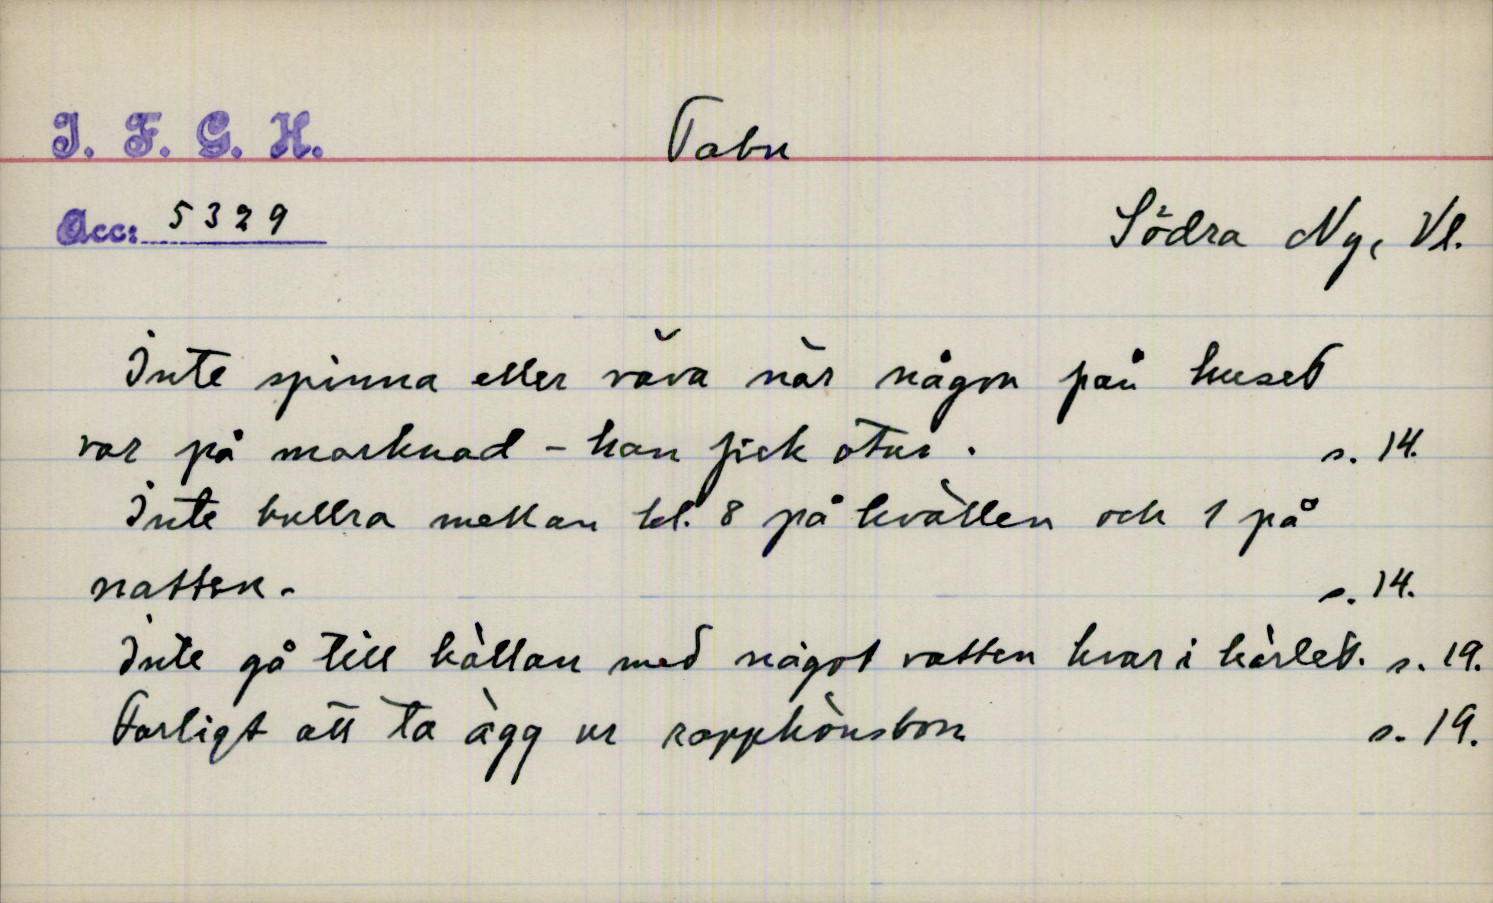 I. F. G. H.
Tabu
Acc: 5329
Södra Ny, Vl.
Inte spinna eller väva när någon från huset
var på marknad - han fick otur.
s. 14.
Inte bullra mellan kl. 8 på kvällen och 1 på
natten.
s. 14.
Inte gå till källan med något vatten kvar i kärlet. s. 19.
Farligt att ta ägg ur rapphönsbon
s. 19.